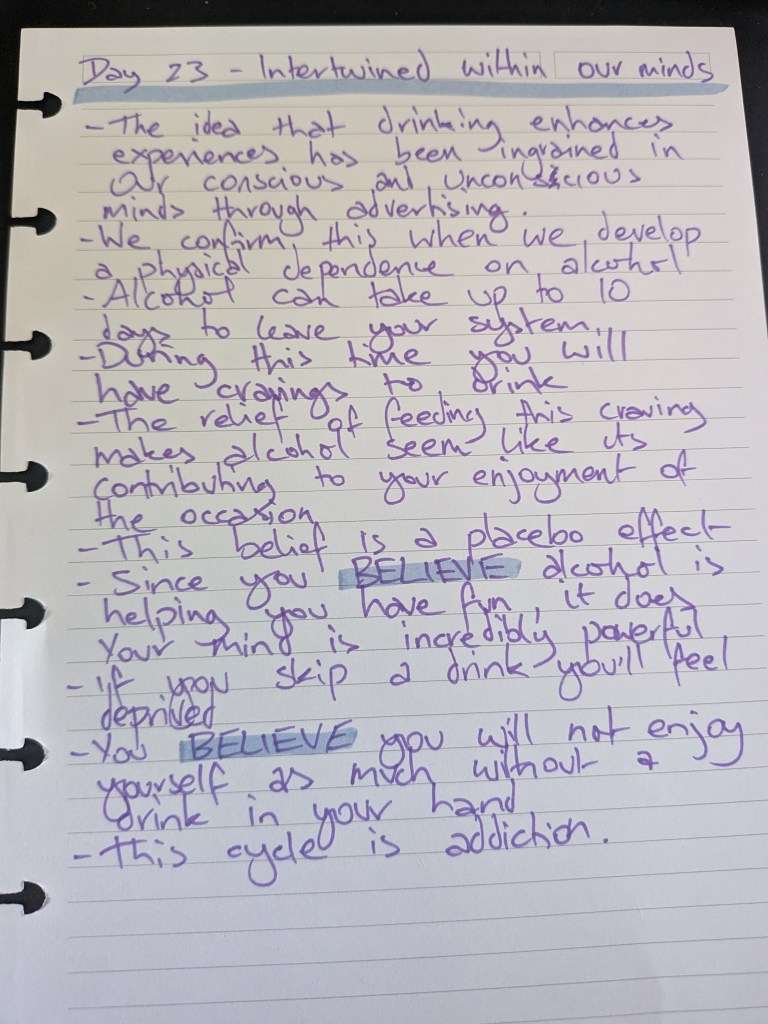 Day 23 - Intertwined within our minds
- The idea that drinking enhances
experiences has been ingrained in
our conscious and unconscious
minds through advertising.
- We confirm this when we develop
a physical dependence on alcohol
- Alcohol can take up to 10
days to leave your system.
- During this time you will
have cravings to drink
- The relief of feeding this craving
makes alcohol seem like its
contributing to your enjoyment of
the occasion
- This belief is a placebo effect
- Since you BELIEVE alcohol is
helping you have fun, it does
Your mind is incredibly powerful
- if you skip a drink you'll feel
deprived
- You BELIEVE you will not enjoy
yourself as much without a
drink in your hand
- this cycle is addiction.